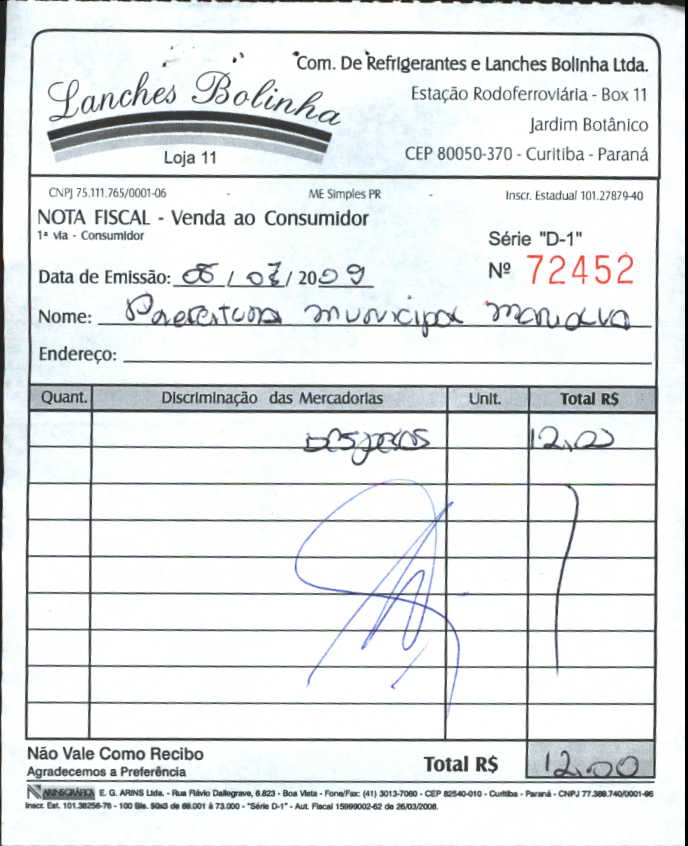 Com. De Refrigerantes e Lanches Bolinha Ltda.
Lanches Bolinha
Estação Rodoferroviária - Box 11
Jardim Botânico
Loja 11
CEP 80050-370 - Curitiba - Paraná
CNPJ 75.111.765/0001-06 - ME Simples PR - Inscr. Estadual 101.27879-40
NOTA FISCAL - Venda ao Consumidor
1ª via - Consumidor
Série "D-1"
Nº 72452
Data de Emissão: 08 / 07 / 2009
Nome: Prefeitura municipal marialva
Endereço:
Quant. Discriminação das Mercadorias Unit. Total R$
Despesas 12,00
Não Vale Como Recibo
Agradecemos a Preferência
Total R$ 12,00
ARINSGRÁFICA E. G. ARINS Ltda. - Rua Flávio Dallegrave, 6.823 - Boa Vista - Fone/Fax: (41) 3013-7060 - CEP 82540-010 - Curitiba - Paraná - CNPJ 77.388.740/0001-96
Inscr. Est. 101.38256-76 - 100 Bls. 50x3 de 68.001 à 73.000 - "Série D-1" - Aut. Fiscal 15999002-62 de 26/03/2008.